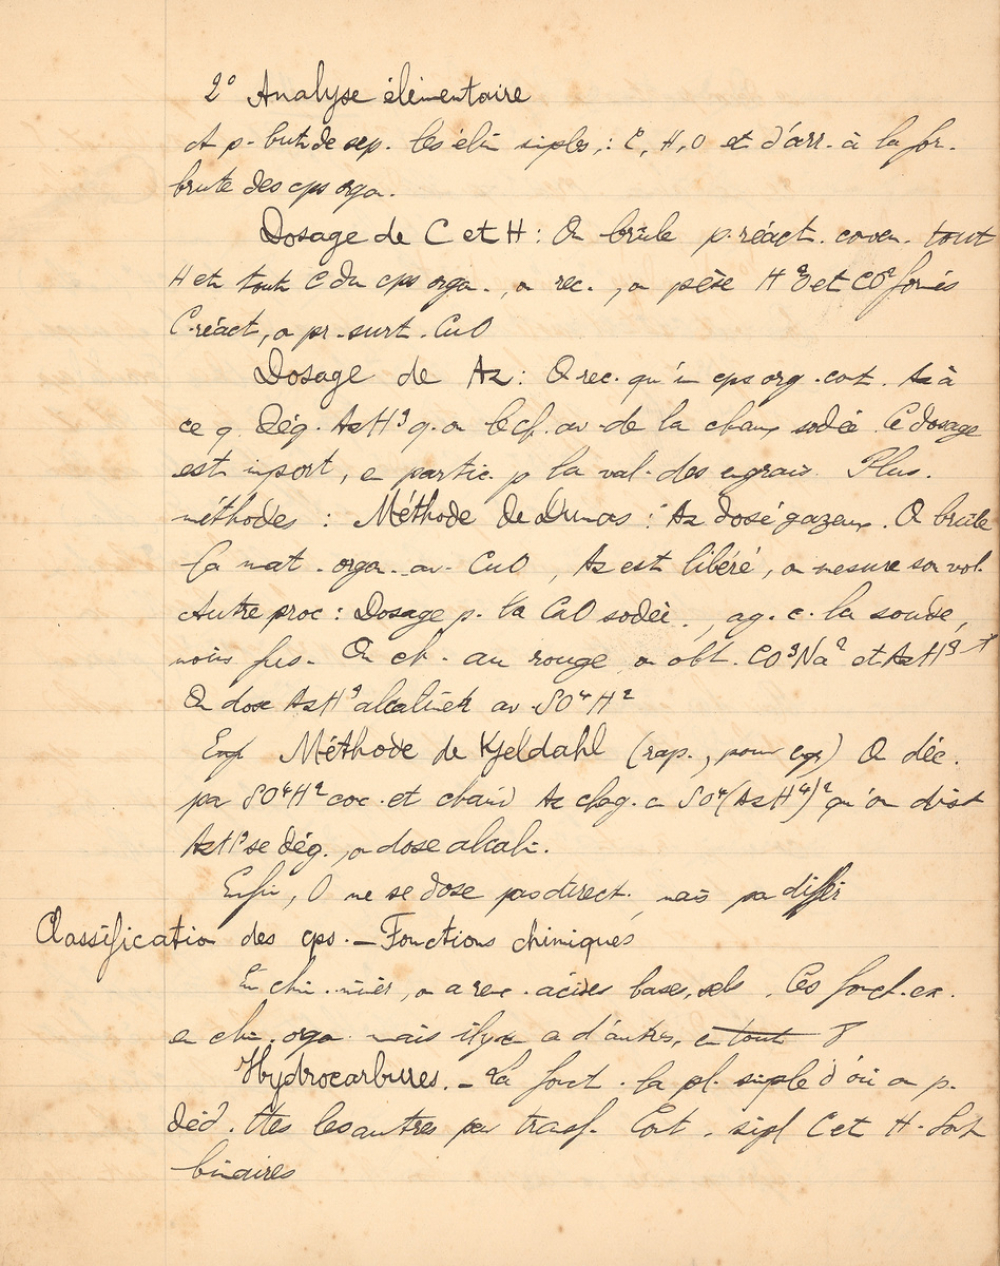 2° Analyse élémentaire
A p. but de sep. les élém simples, : C, H, O et d'arr. à la for.
brute des cps orga.
Dosage de C et H : On brûle p. réact. conven. tout
H et tout C du cps orga., on rec., on pèse H²O et CO² formés
C. réact, on pr. surt. CuO
Dosage de Az : On rec. qu'un cps org. cont. Az à
ce q. dég. AzH³ q. on le ch. av. de la chaux sodée. Ce dosage
est import, en partic. p la val. des engrais. Plus.
méthodes : Méthode de Dumas : Az dosé gazeux. On brûle
la mat. orga. av. CuO, Az est libéré, on mesure son vol.
Autre proc : Dosage p. la CaO sodée., ag. c. la soude,
moins fus. On ch. au rouge on obt. CO³Na² et AzH³
On dose AzH³ alcalimét av. SO⁴H²
Méthode de Kjeldahl (rap., pour ) On déc.
par SO⁴H² conc. et chaud Az chag. en SO⁴(AzH⁴)² qu'on dist
AzH³ se dég., on dose alcali.
Enfin, O ne se dose pas direct. mais par différ
Classification des cps. — Fonctions chimiques
En chim. minér, on a renc. acides bases, sels. Ces fonct. ex.
en chim. orga mais il y en a d'autres, en tout 8
Hydrocarbures. — La fonct. la pl. simple d'où on p.
déd. ttes les autres par transf. Cont. simpl C et H. Sont
binaires